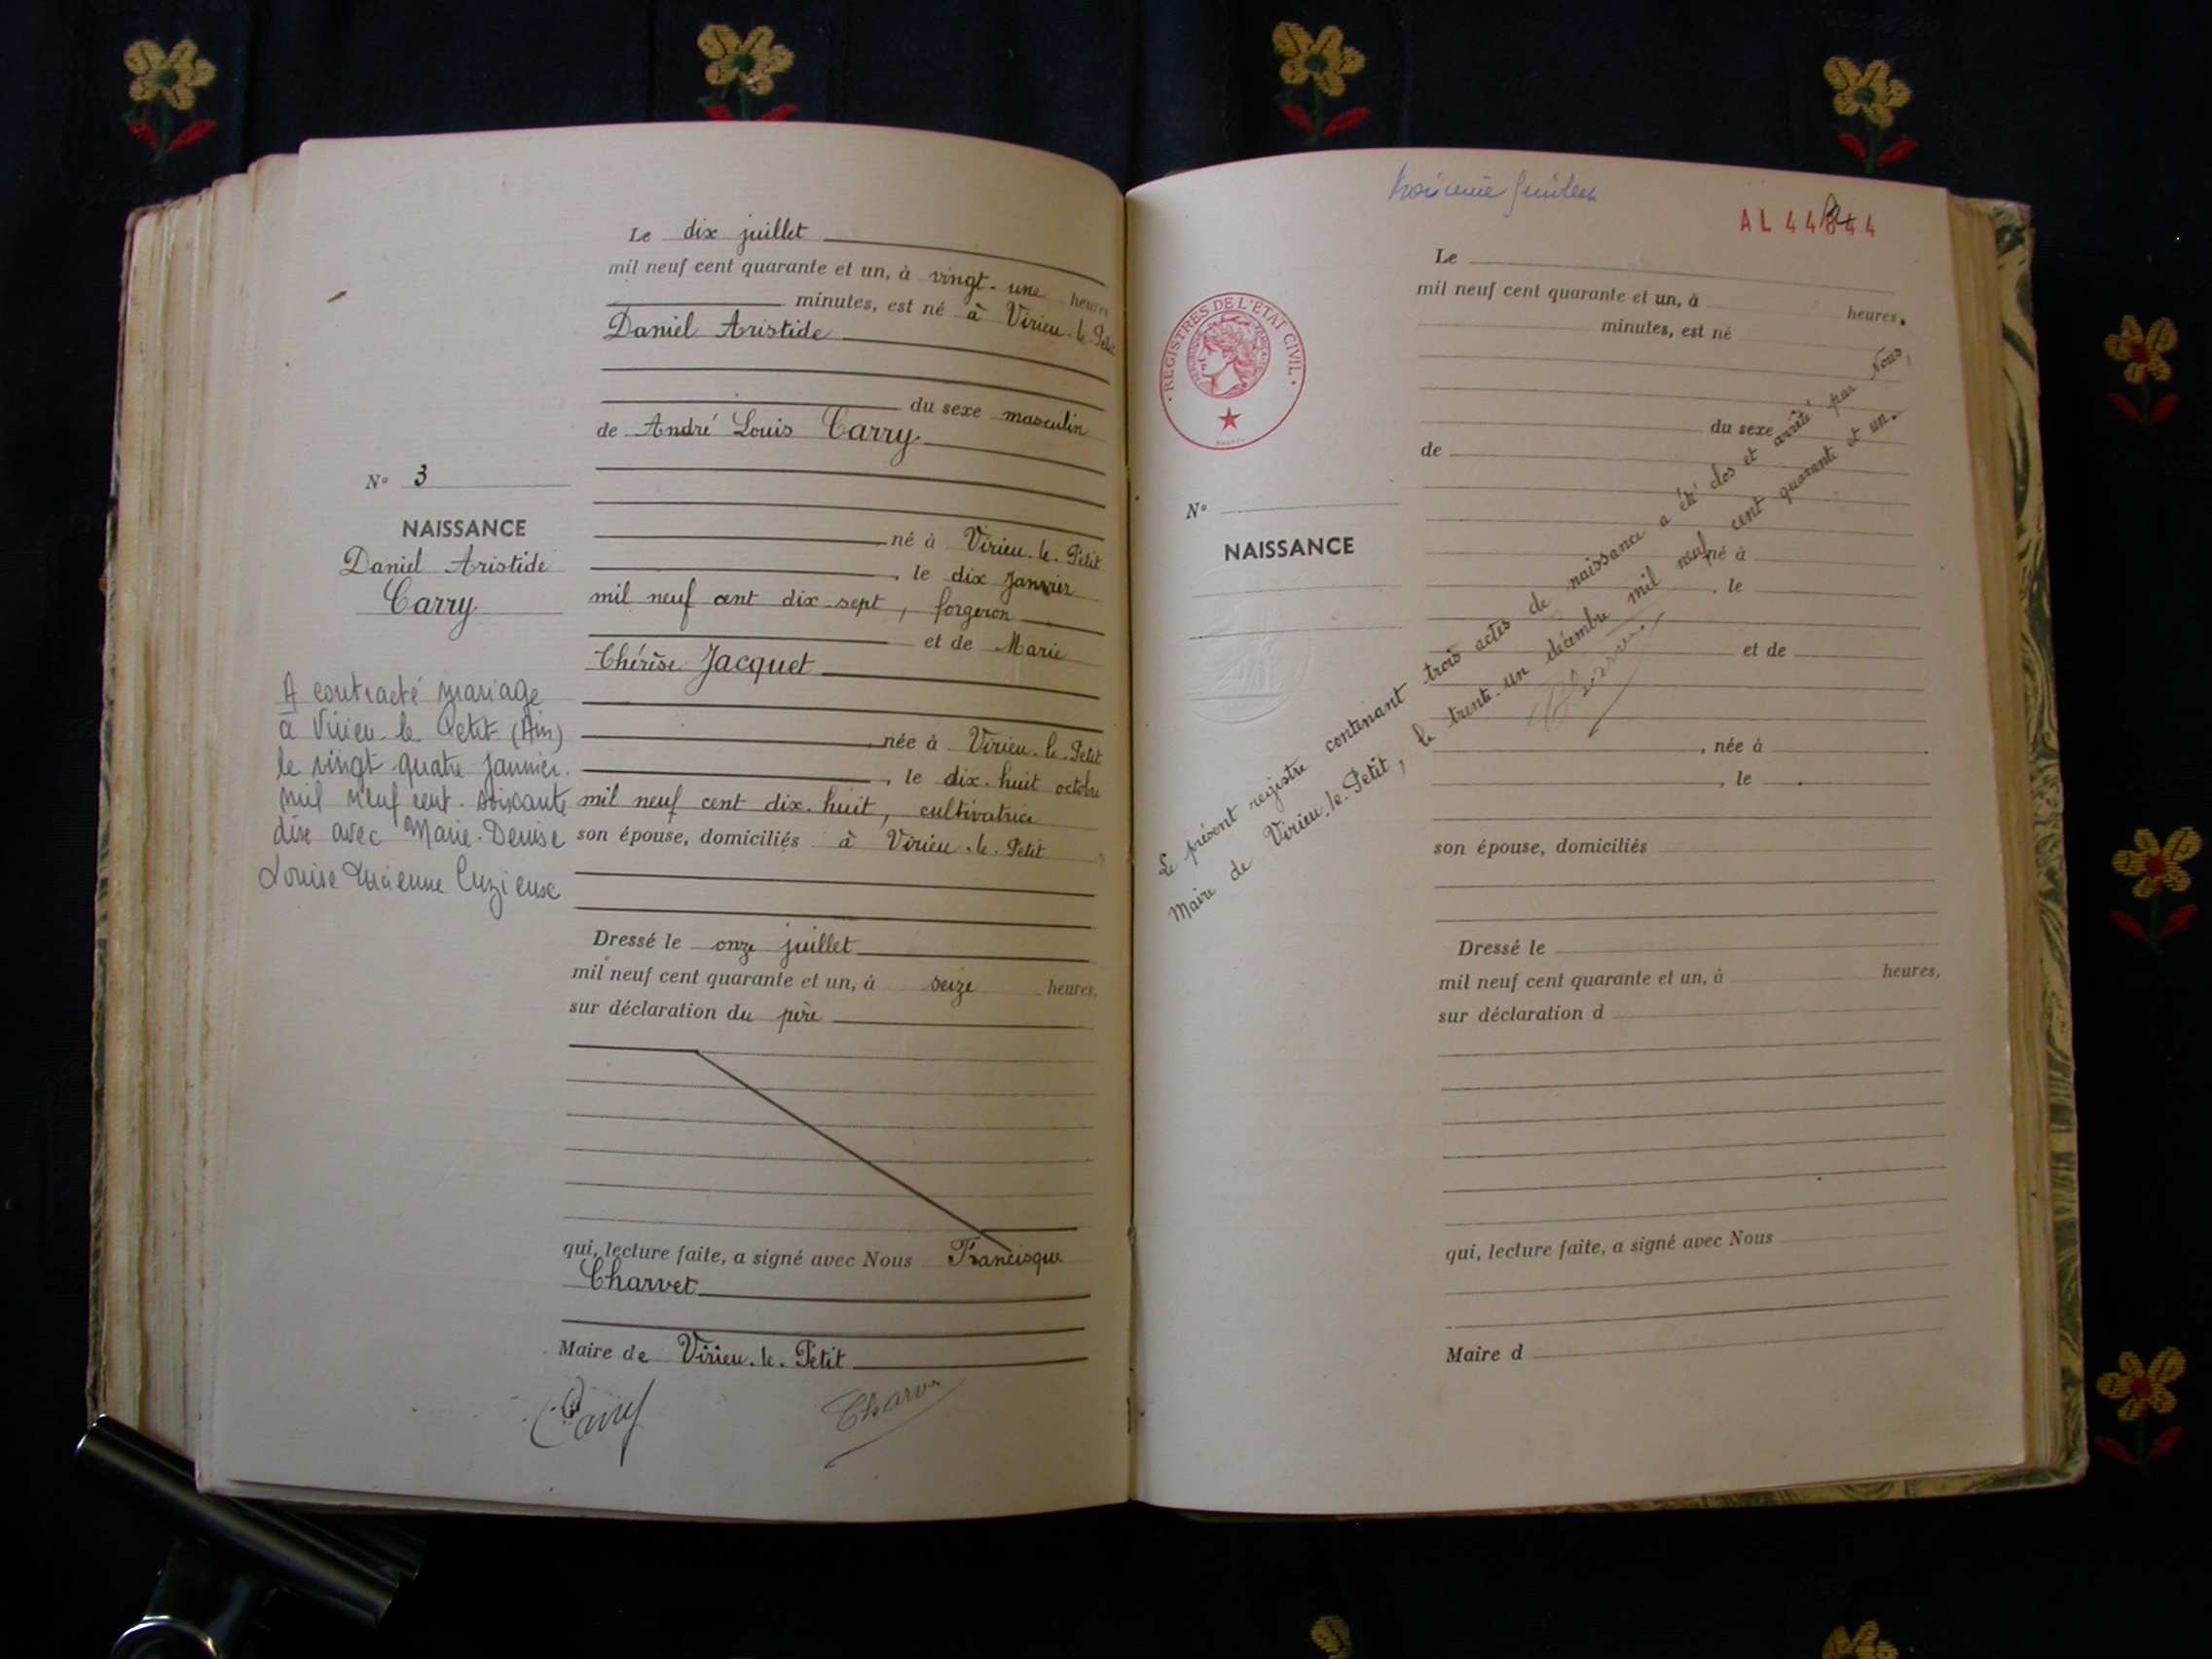 Le dix juillet
mil neuf cent quarante et un, à vingt-une heures
minutes, est né à Virieu-le-Petit
Daniel Aristide
du sexe masculin
de André Louis Carry
né à Virieu-le-Petit
, le dix Janvier
mil neuf cent dix-sept, forgeron
et de Marie
Thérèse Jacquet
, née à Virieu-le-Petit
, le dix-huit octobre
mil neuf cent dix-huit, cultivatrice
son épouse, domiciliés à Virieu-le-Petit
Dressé le onze juillet
mil neuf cent quarante et un, à seize heures,
sur déclaration du père
qui, lecture faite, a signé avec Nous Francisque
Charvet
Maire de Virieu-le-Petit
Carry
N° 3
NAISSANCE
Daniel Aristide
Carry
A contracté mariage
à Virieu-le-Petit (Ain)
le vingt-quatre janvier
mil neuf cent-soixante
dix avec Marie-Denise
Louise
AL 44
REGISTRES DE L'ÉTAT CIVIL
Le
mil neuf cent quarante et un, à heures.
minutes, est né
du sexe
de
N°
NAISSANCE
né à
, le
et de
, née à
, le
son épouse, domiciliés
Dressé le
mil neuf cent quarante et un, à heures,
sur déclaration d
qui, lecture faite, a signé avec Nous
Maire d
Le présent registre contenant trois actes de naissance a été clos et arrêté par Nous,
Maire de Virieu-le-Petit, le trente-un décembre mil neuf cent quarante et un.